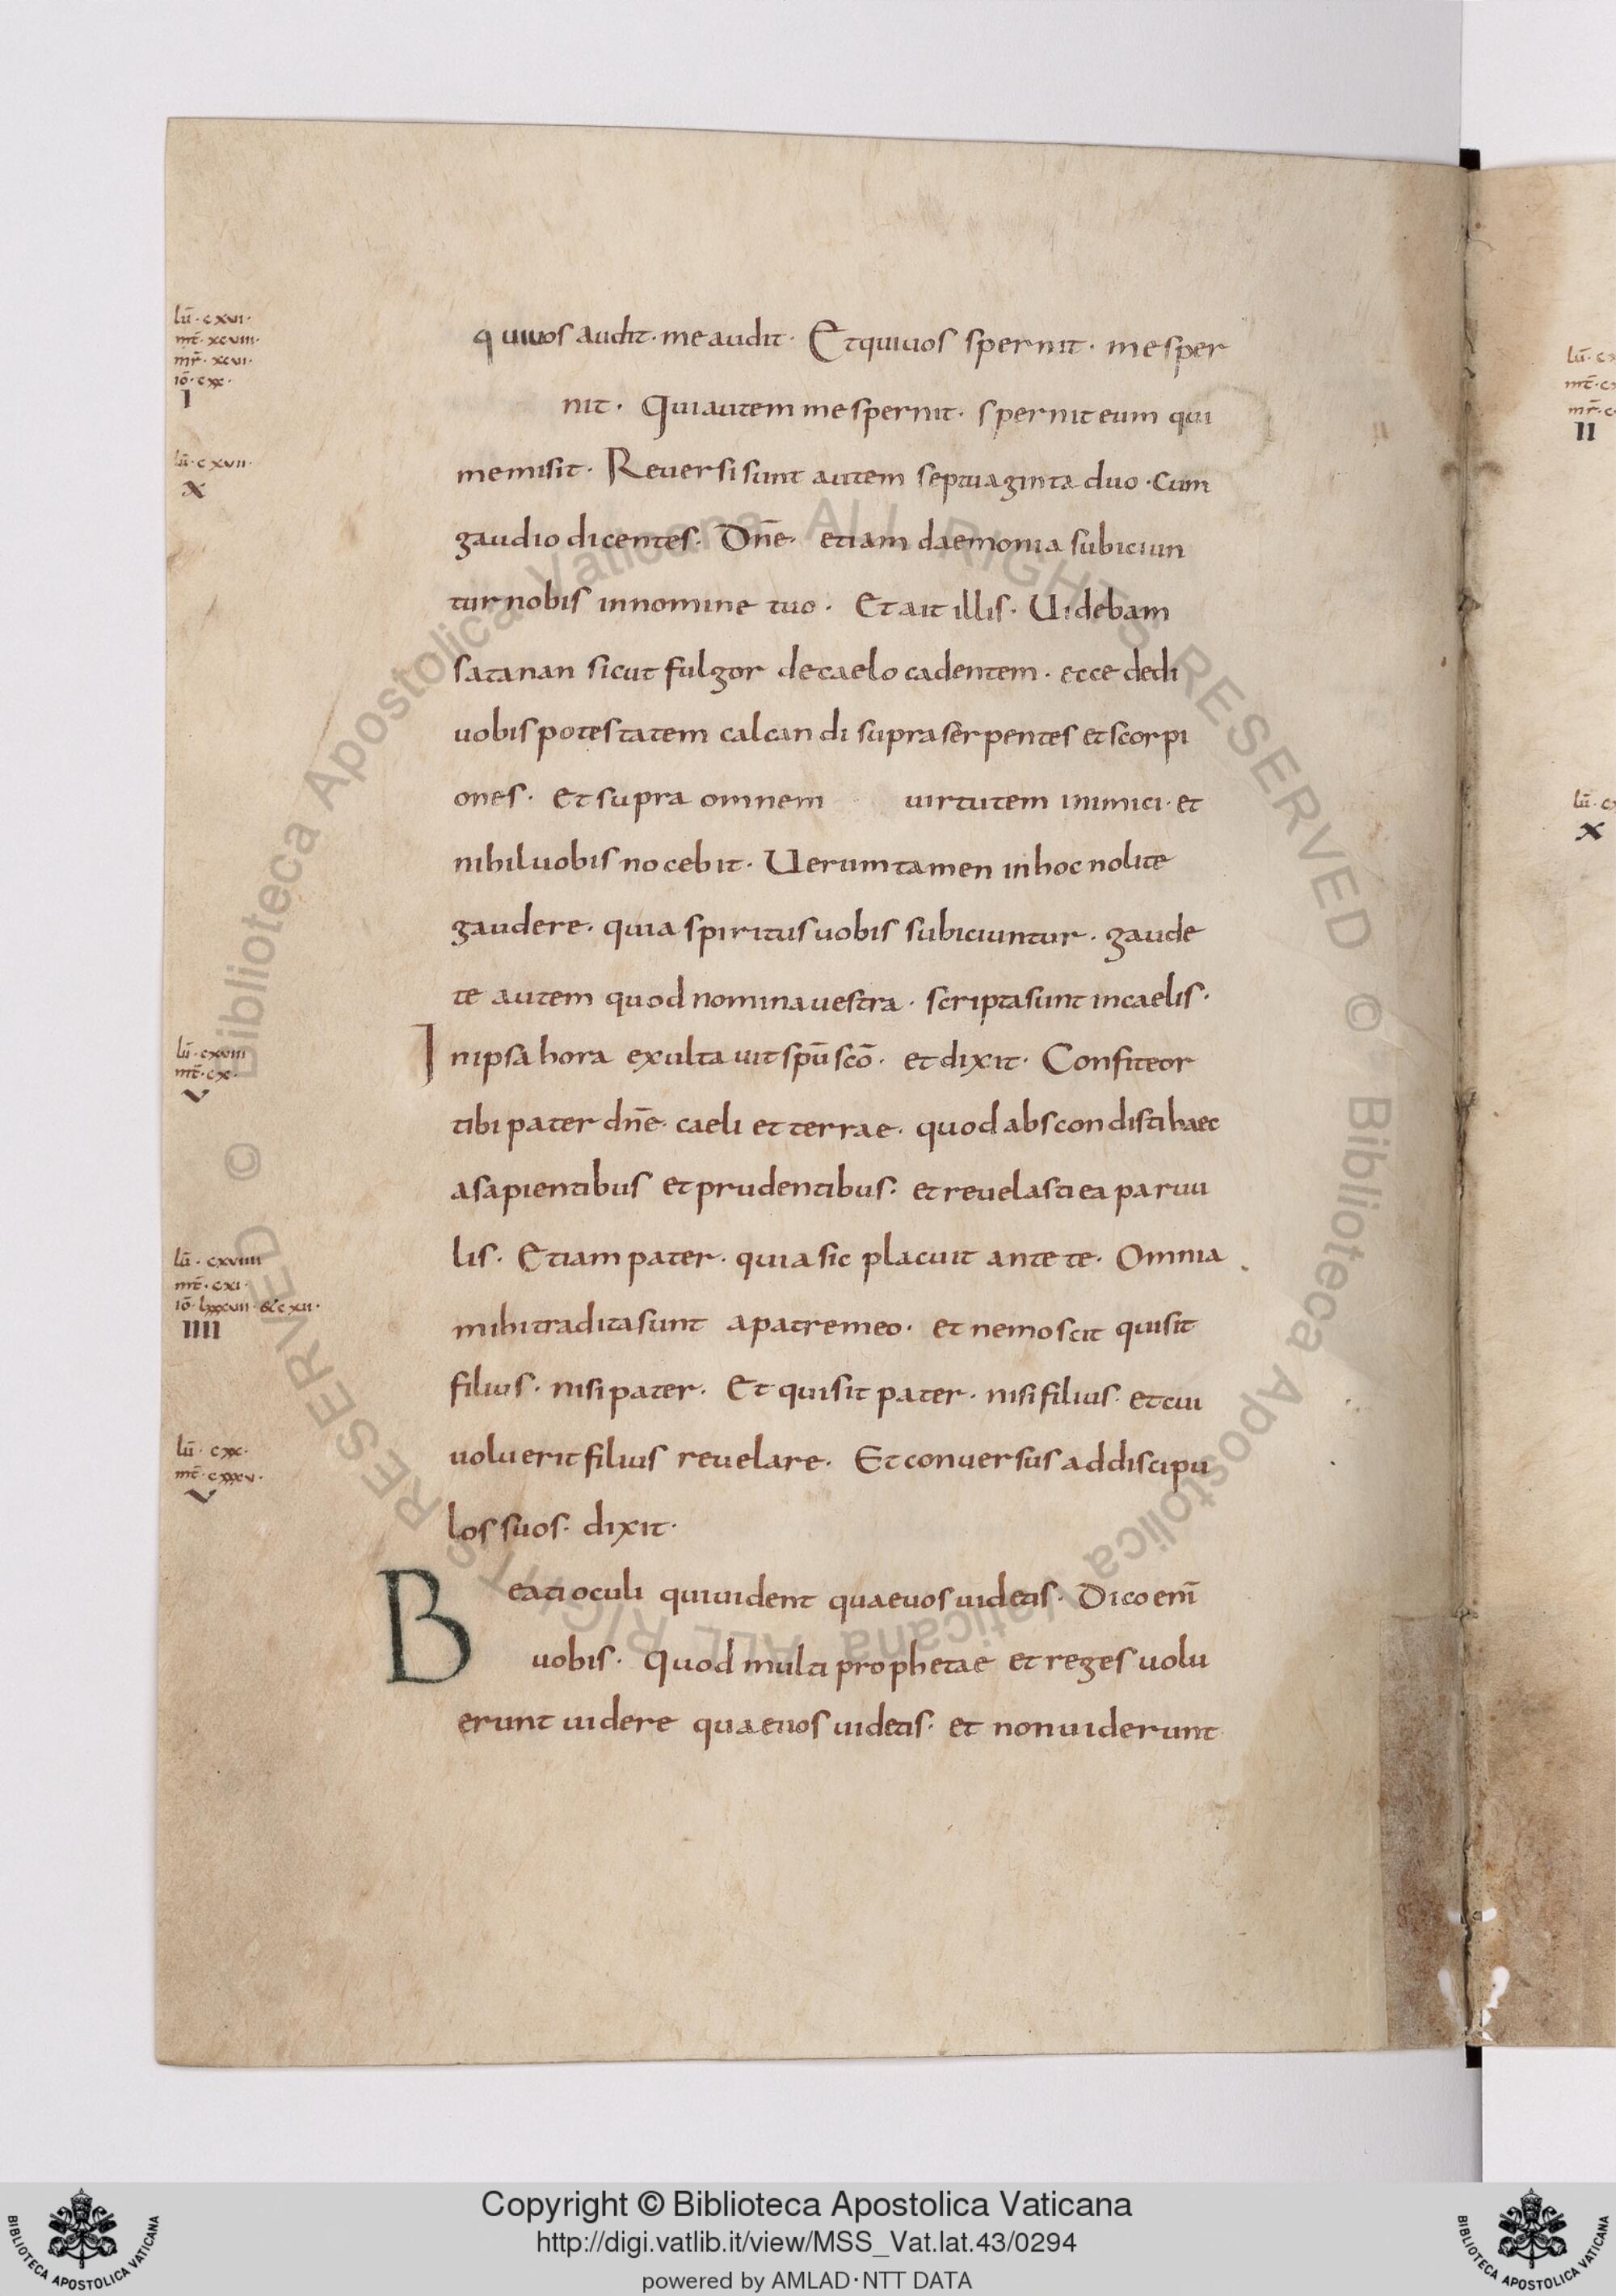 lū · cxvi ·
mt̄ · xcviii ·
mr̄ · xcvi ·
iō · cxx ·
I
quiuos audit · me audit · Et qui uos spernit · me sper
nit · Qui autem me spernit · spernit eum qui
lū · cxvii ·
X
me misit · Reuersi sunt autem septuaginta duo · cum
gaudio dicentes · Dn̄e · etiam daemonia subiciun
tur nobis in nomine tuo · Et ait illis · Uidebam
satanan sicut fulgor de caelo cadentem · ecce dedi
uobis potestatem calcandi supra serpentes et scorpi
ones · et supra omnem uirtutem inimici · et
nihil uobis nocebit · Uerum tamen in hoc nolite
gaudere · quia spiritus uobis subiciuntur · gaude
te autem quod nomina uestra · scripta sunt in caelis ·
lū · cxviii
mt̄ · cx ·
V
In ipsa hora exultauit spū scō · et dixit · Confiteor
tibi pater dn̄e · caeli et terrae · quod abscondisti haec
a sapientibus et prudentibus · et reuelasti ea paruu
lū · cxviiii
mt̄ · cxi ·
iō · lxxxvii · & cxii ·
IIII
lis · Etiam pater · quia sic placuit ante te · Omnia
mihi tradita sunt a patre meo · et nemo scit qui sit
filius · nisi pater · Et qui sit pater · nisi filius · et cui
lū · cxx ·
mt̄ · cxxxv ·
V
uoluerit filius reuelare · Et conuersus ad discipu
los suos · dixit ·
Beati oculi qui uident quae uos uidetis · Dico enī
uobis · Quod multi prophetae et reges uolu
erunt uidere quae uos uidetis · et non uiderunt
lū · cx
mt̄ · c
mr̄ · c
II
lū · cx
X
© Biblioteca Apostolica Vaticana ALL RIGHTS RESERVED © Biblioteca Apostolica Vaticana ALL RIGHTS RESERVED
Copyright © Biblioteca Apostolica Vaticana
http://digi.vatlib.it/view/MSS_Vat.lat.43/0294
powered by AMLAD·NTT DATA
BIBLIOTECA APOSTOLICA VATICANA
BIBLIOTECA APOSTOLICA VATICANA